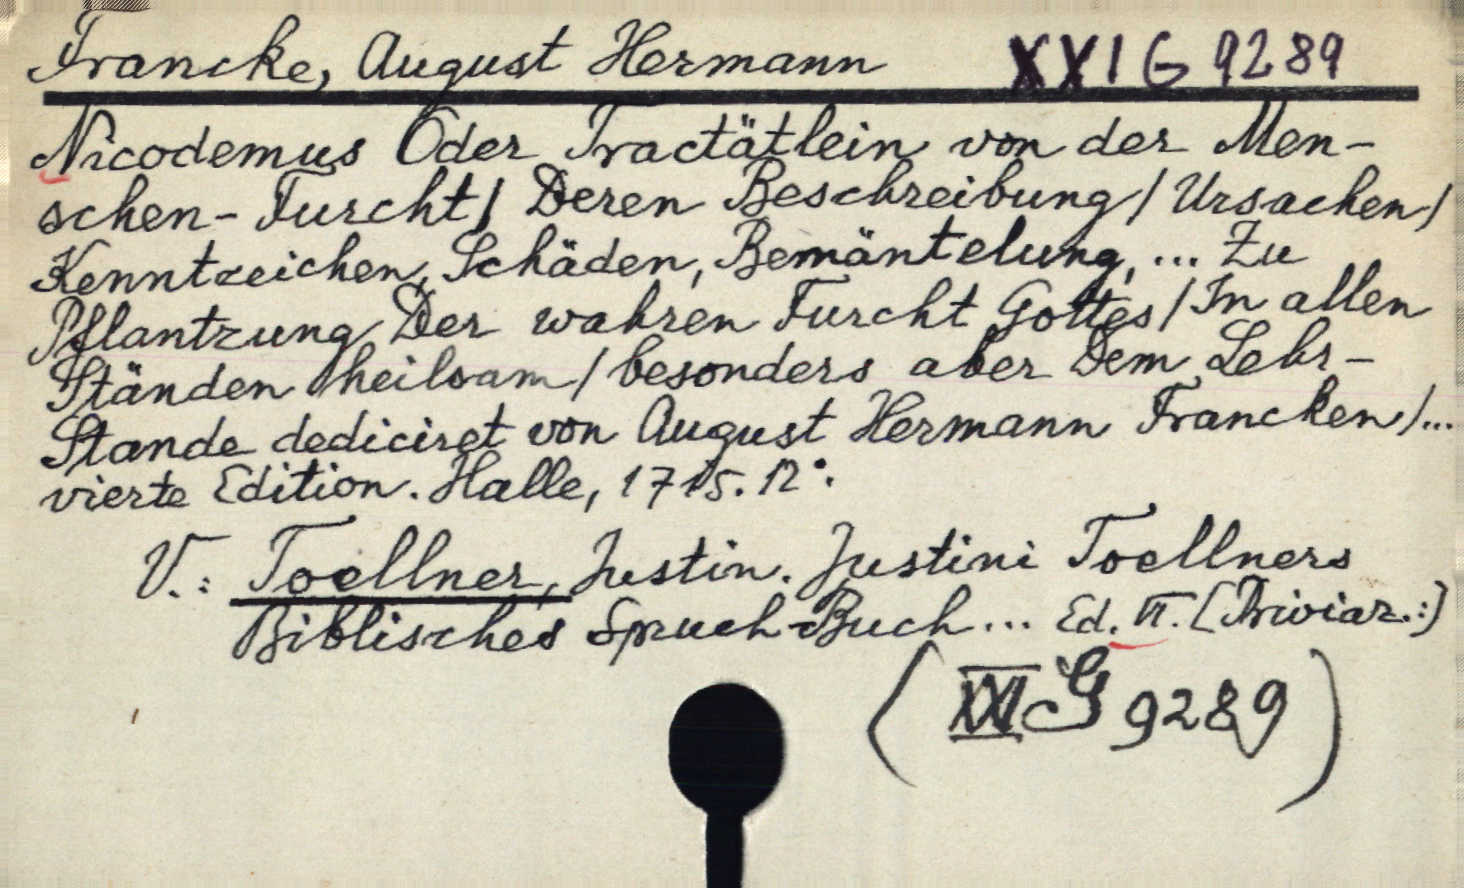 Francke, August Hermann XXI G 9289
Nicodemus Oder Tractätlein von der Men-
schen-Furcht/ Deren Beschreibung/ Ursachen/
Kenntzeichen, Schäden, Bemäntelung, ... Zu
Pflantzung Der wahren Furcht Gottes/ In allen
Ständen heilsam/ besonders aber Dem Lehr-
Stande dediciret von August Hermann Francken/...
vierte Edition. Halle, 1715. 12°.
V.: Toellner, Justin. Justini Toellners
Biblisches Spruch-Buch... Ed. VI. [Briviar.:]
(XXI G 9289)